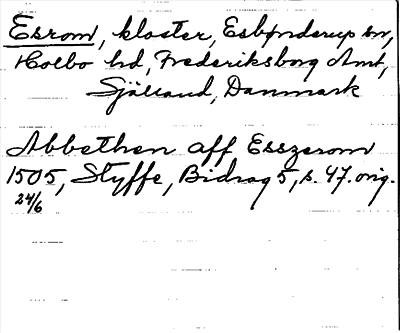 Esrom, kloster, Esbønderup sn,
Holbo hd, Frederiksborg Amt,
Själland, Danmark
Abbethen aff Esszerom
1505, Styffe, Bidrag 5, s. 47. orig.
24/6